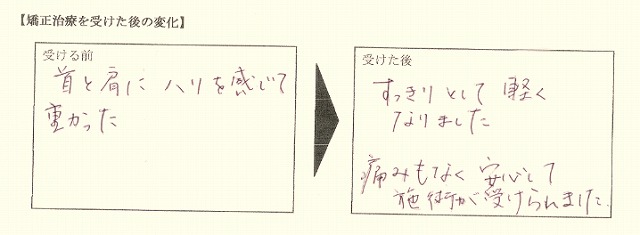 【矯正治療を受けた後の変化】
受ける前
首と肩に ハリを感じて
重かった
受けた後
すっきりとして 軽く
なりました
痛みもなく 安心して
施術が受けられました。